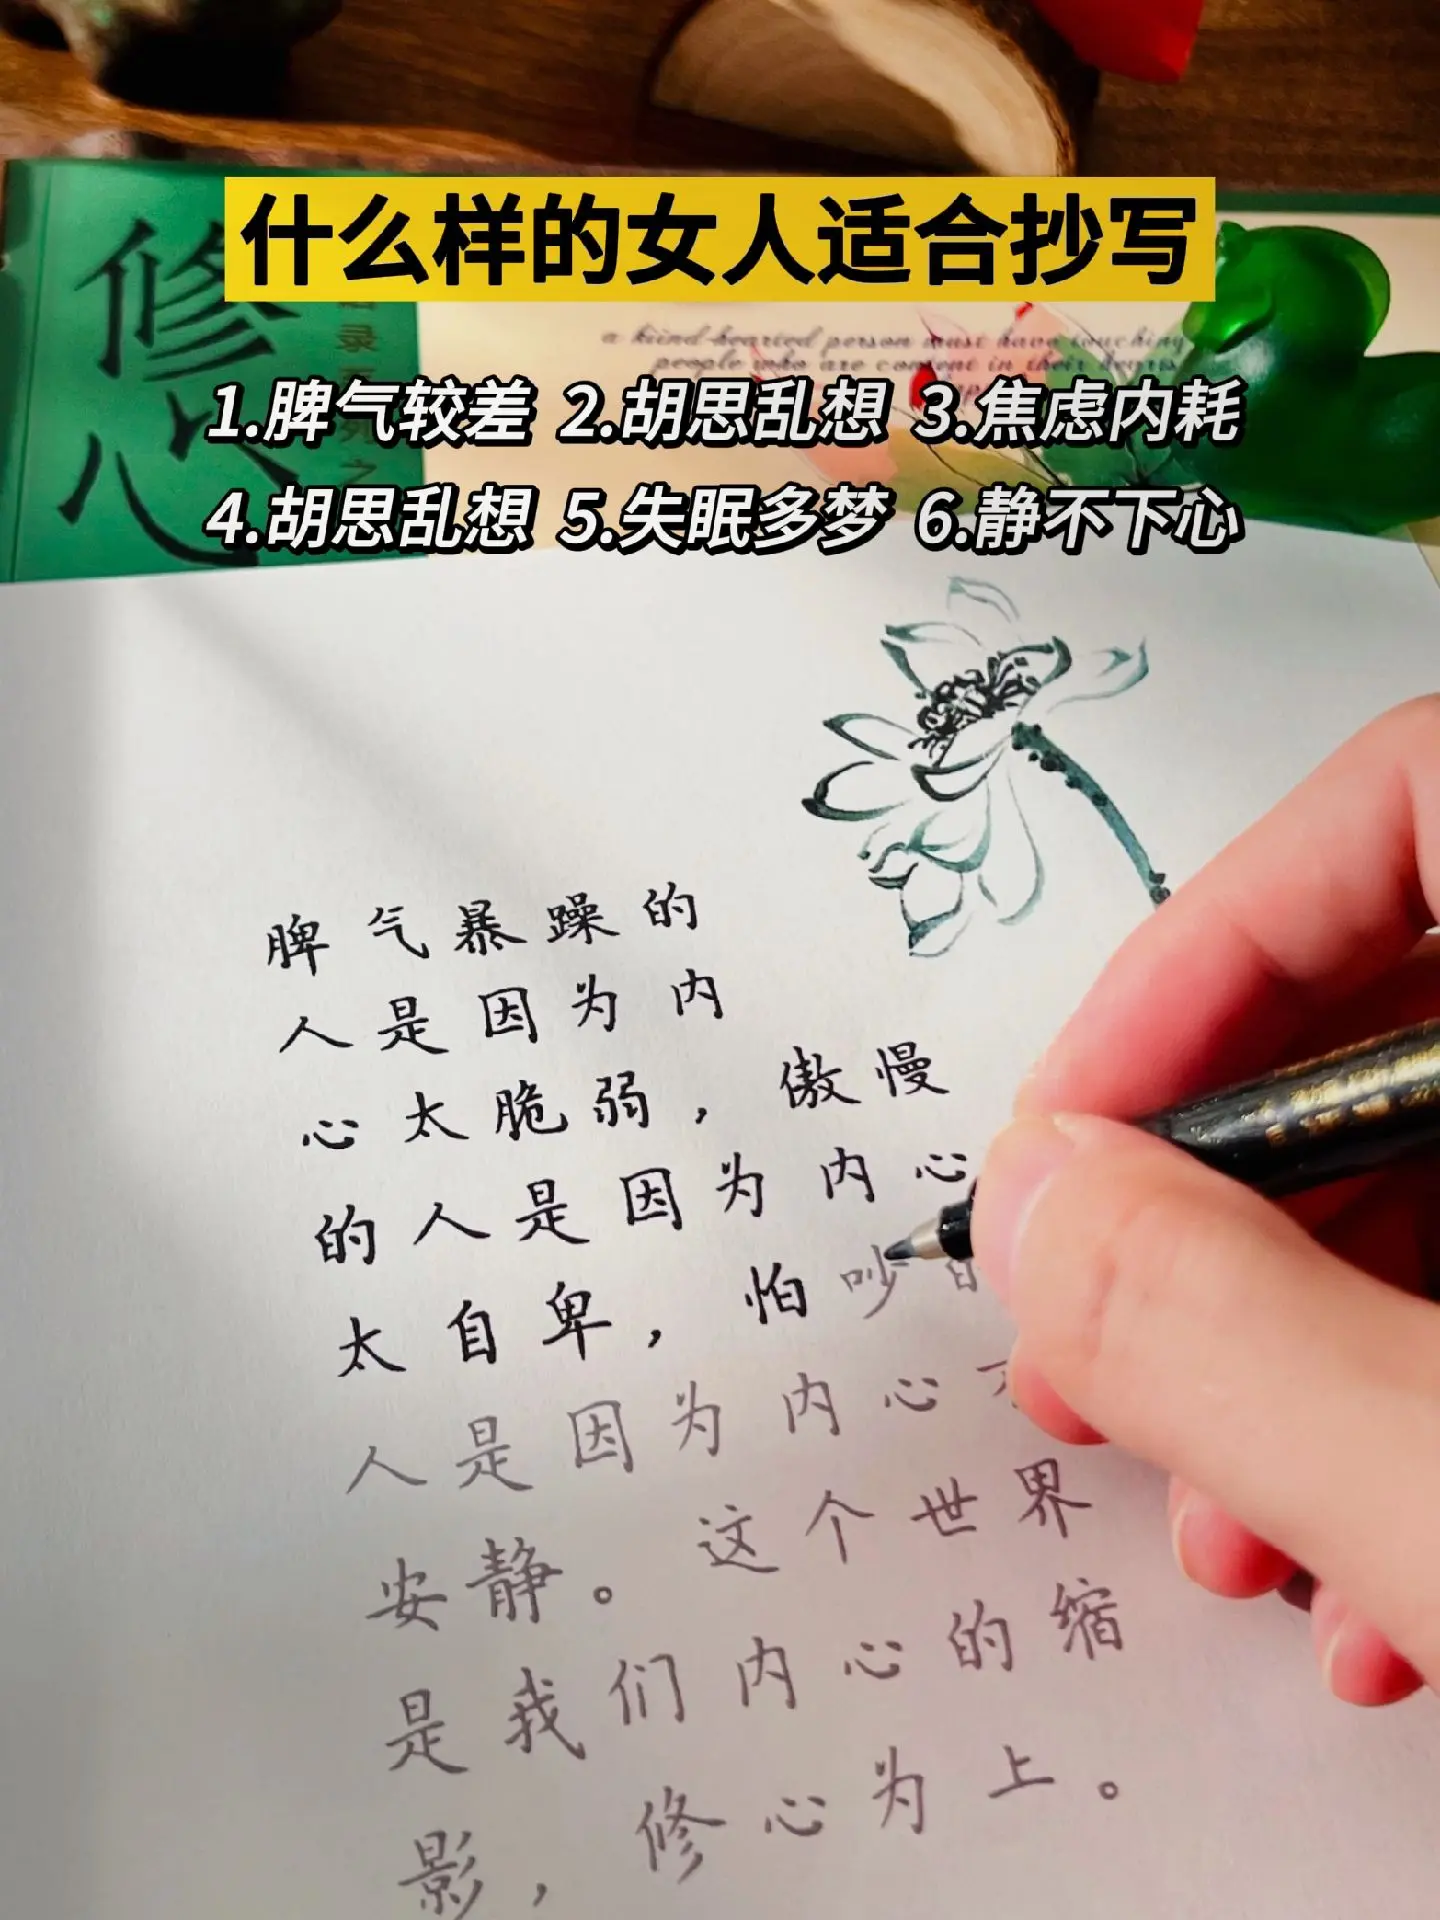 什么样的女人适合抄写
修心
a kiind-hearted person must have touching
people who are content in their
1.脾气较差 2.胡思乱想 3.焦虑内耗
4.胡思乱想 5.失眠多梦 6.静不下心
脾气暴躁的
人是因为内
心太脆弱，傲慢
的人是因为内心
太自卑，怕吵
人是因为内心
安静。这个世界
是我们内心的缩
影，修心为上。